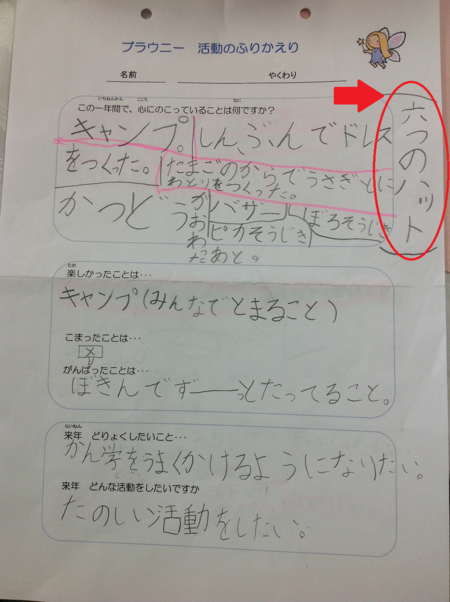 ブラウニー 活動のふりかえり
名前 やくわり
いちねんかん こころ なに
この一年間で、心にのこっていることは何ですか?
キャンプ。しんぶんでドレス
をつくった。たまごのからでうさぎとに
わとりをつくった。
かつどうが
おわ
たあと。
バザー
ピカそうじき
ぼろそうじき
六つのハット
たの
楽しかったことは…
キャンプ(みんなでとまること)
こまったことは…
がんばったことは…
ぼきんでずーーっとたってること。
らいねん
来年 どりょくしたいこと…
かん学をうまくかけるようになりたい。
来年 どんな活動をしたいですか
たのしい活動をしたい。